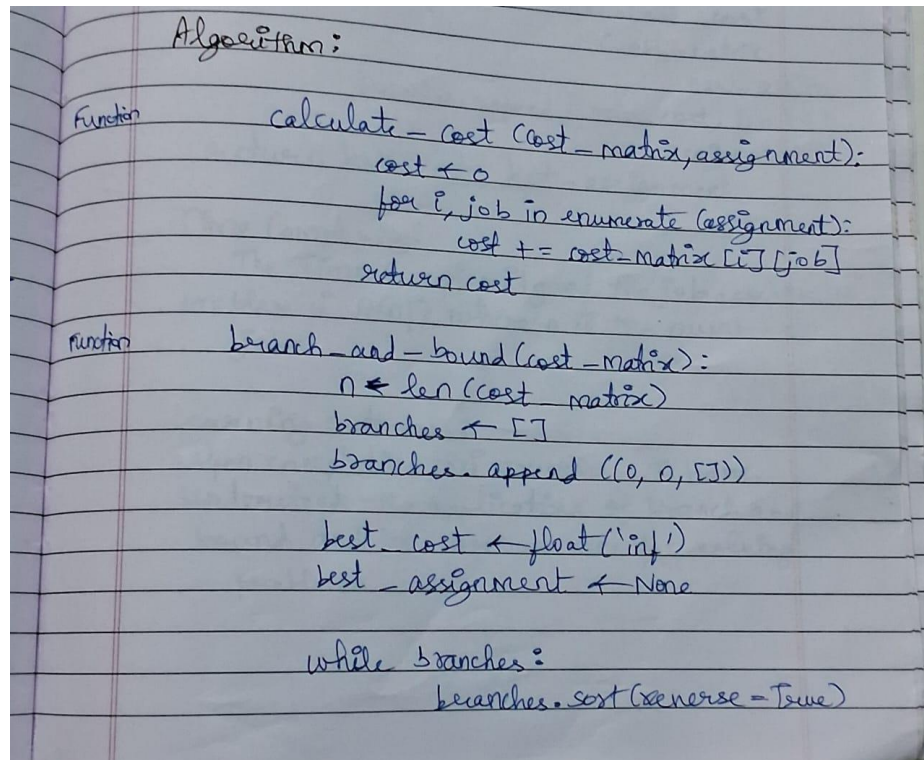 Algorithm:
Function calculate_cost (cost_matrix, assignment):
cost ← 0
for i, job in enumerate (assignment):
cost += cost_matrix [i] [job]
return cost
Function branch_and_bound (cost_matrix):
n ← len (cost_matrix)
branches ← []
branches.append ((0, 0, []))
best_cost ← float ('inf')
best_assignment ← None
while branches:
branches.sort (reverse = True)